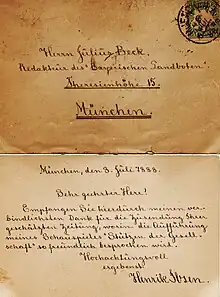 Herrn Julius Beck,
Redakteur des "Bayrischen Landboten"
Theresienhöhe 15.
München.
München, den 3. Juli 1888.
Sehr geehrter Herr!
Empfangen Sie hierdurch meinen ver-
bindlichsten Dank für die Zusendung Ihrer
geschätzten Zeitung, worin die Aufführung
meines Schauspieles "Stützen der Gesell-
schaft" so freundlich besprochen wird.
Hochachtungsvoll
ergebenst
Henrik Ibsen.